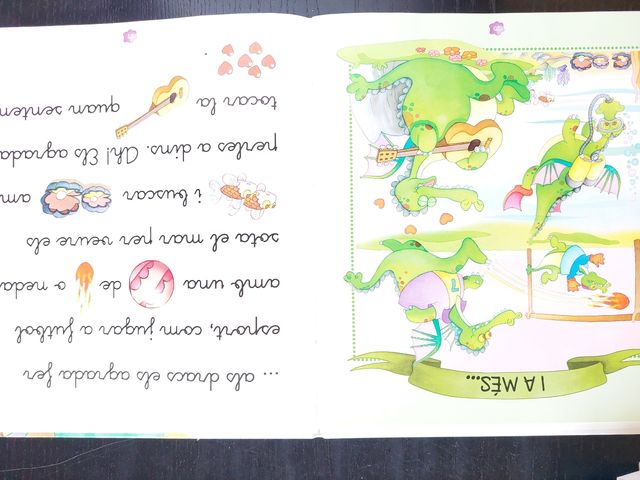 I A MÉS...
... als dracs els agrada fer
esport, com jugar a futbol
amb una de o neda
sota el mar per veure els
i buscar am
perles a dins. Ah! Els agrada
tocar la quan senten